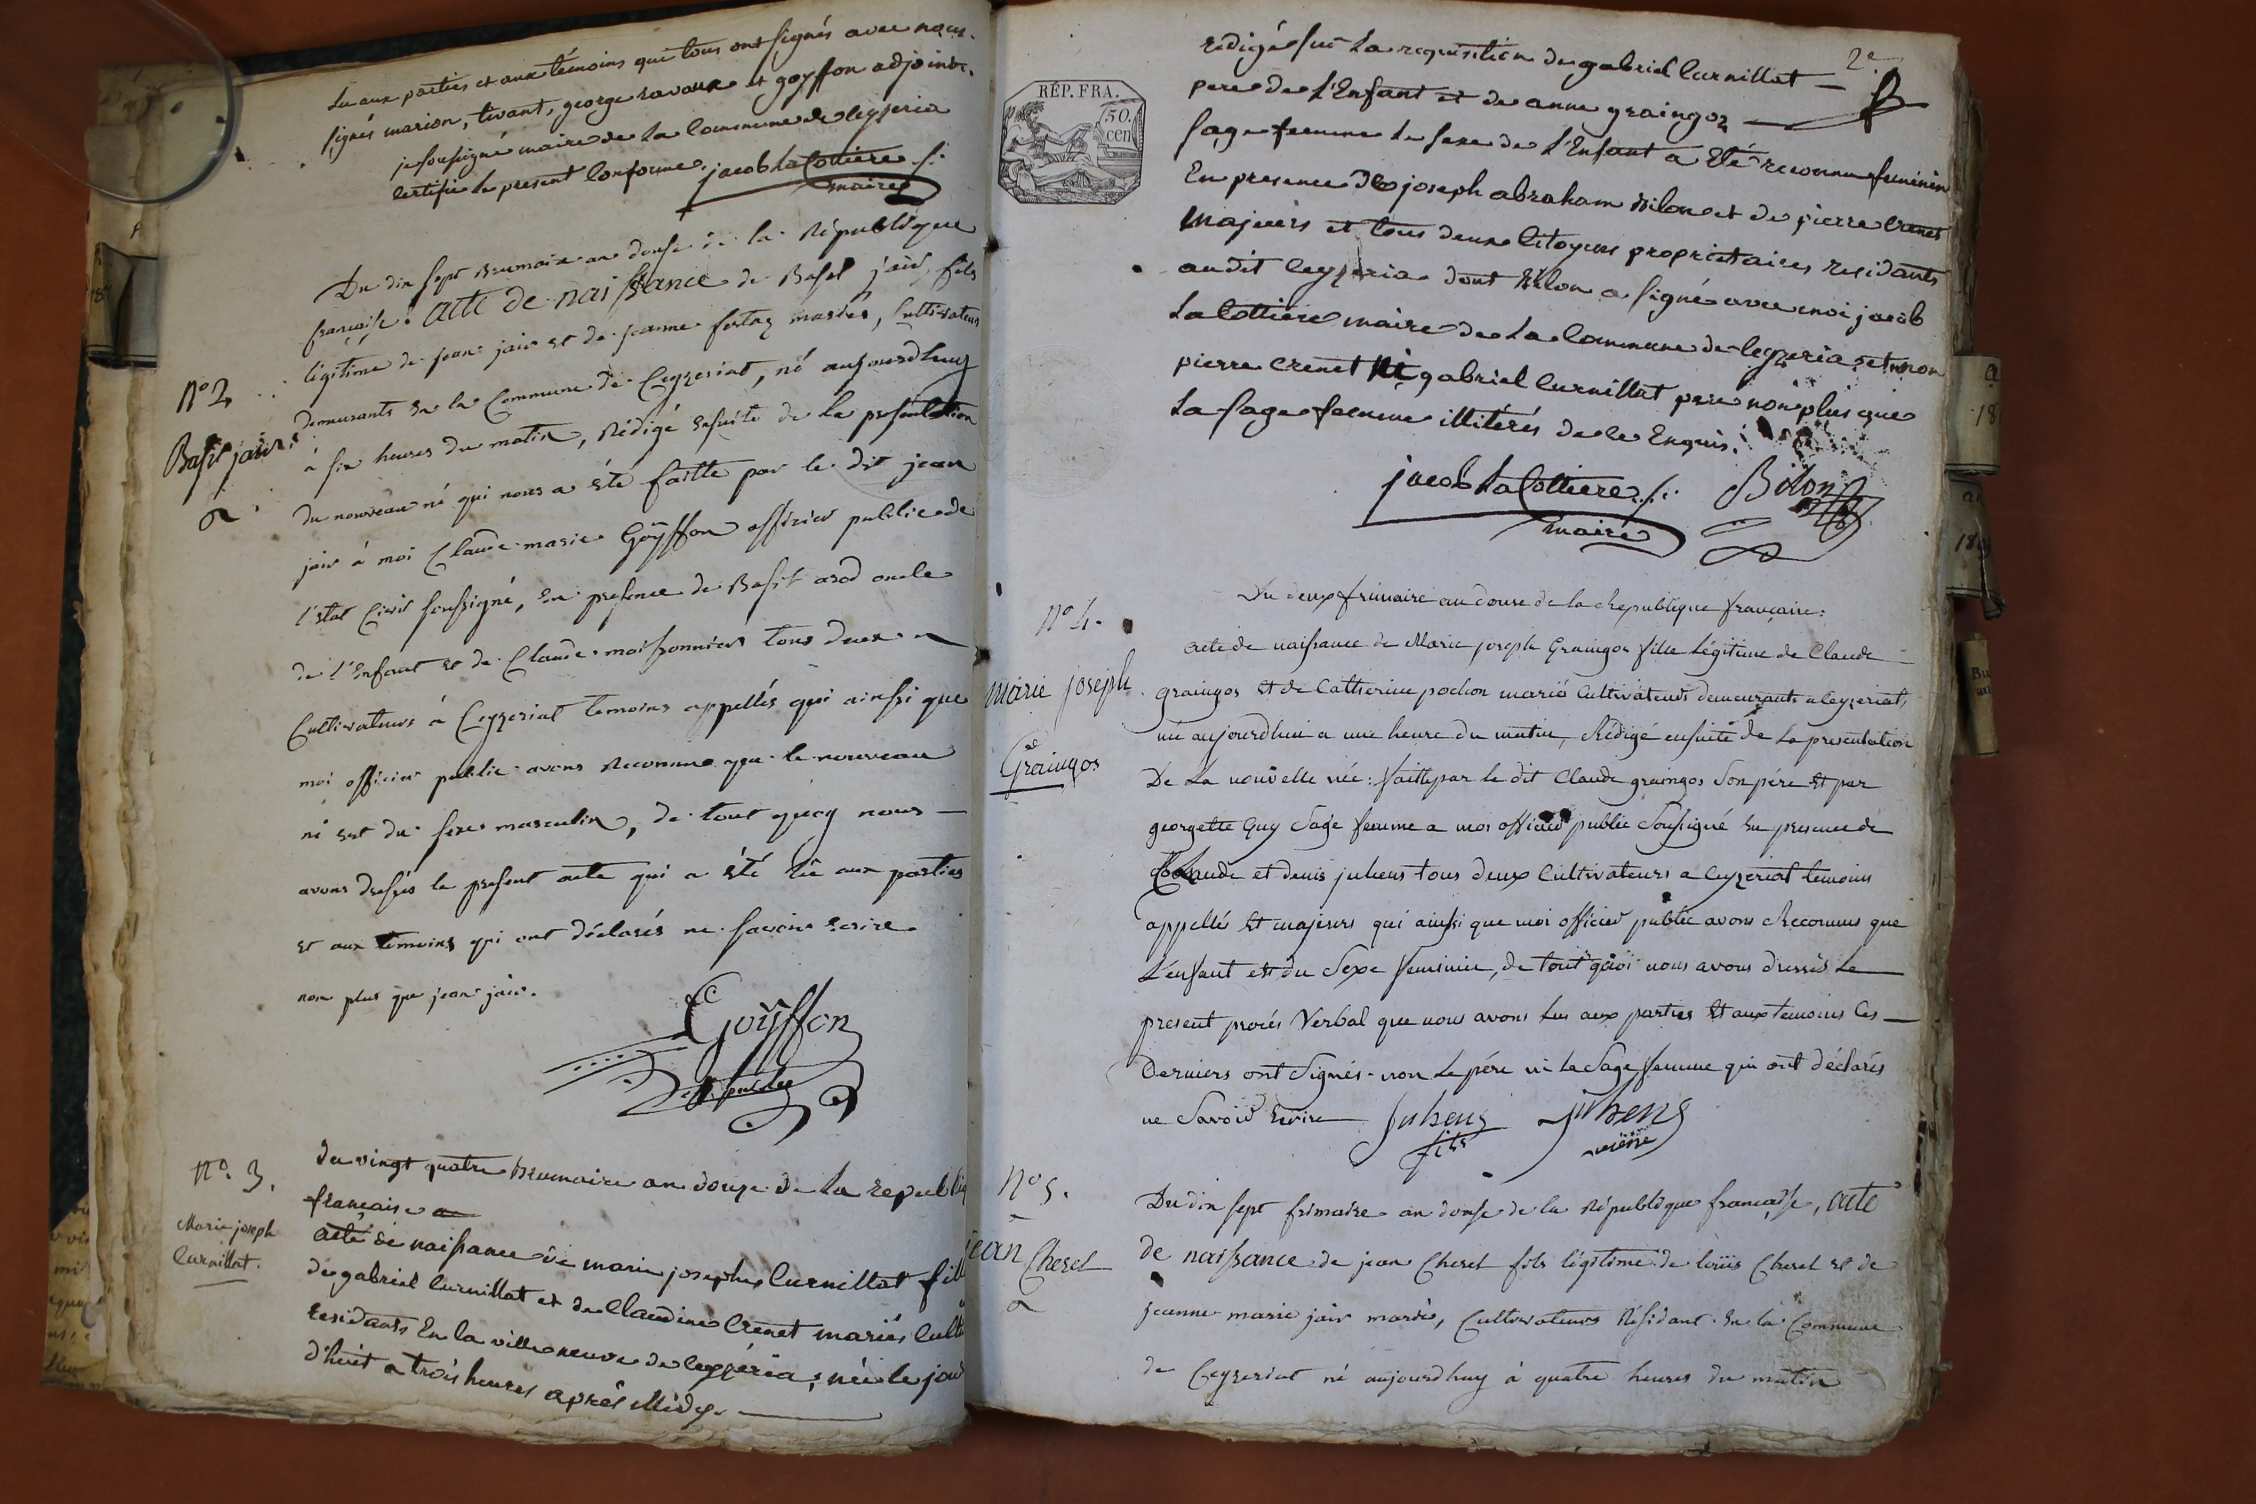 Lu aux parties et aux témoins qui tous ont signés avec nous.
signés marion, tivant, george ravoux et goyffon adjoint.
je soussigné maire de la Commune de Ceyzeria
Certifie le present Conforme. jacob La Cottiere
maire
Du dix sept Brumaire an douse de la République
française. acte de naissance de Basil jair, fils
légitime de jean jair et de jeanne fortaz mariés, Cultivateurs
demeurants en la Commune de Ceyzeriat, né aujourdhuy
à six heures du matin, Rédigé ensuite de la presentation
du nouveau né qui nous a été faitte par le dit jean
jair à moi Claude marie Goÿffon officier public de
l'état Civil soussigné, en presence de Basil arod oncle
de l'Enfant et de Claude moissonnier tous deux
Cultivateurs à Ceyzeriat temoins appellés qui ainssi que
moi officier public avons Reconnu que le nouveau
né est du sexe masculin, de tout quoy nous
avons dressés le present acte qui a été lû aux parties
et aux temoins qui ont déclarés ne savoir Ecrire
non plus que jean jair.
Goÿffon
N° 2
Basil jair
N° 3.
Marie joseph
Curnillat.
du vingt quatre Brumaire an douze de la republiq
française
acte de naissance de marie josephe Curnillat fille
de gabriel Curnillat et de Claudine Crenet mariés Culti
residants En la ville neuve de Ceyzéria; née le jour
d'hiér a trois heures après Midy.
2e
RÉP. FRA.
50.
cen
redigé sur La requisition de gabriel Curnillat
pere de L'Enfant et de anne graingoz
sage femme Le sexe de L'Enfant a Eté reconnu feminin
En presence de joseph abraham Bilon et de pierre Crenet
Majeurs et tous deux Citoyens propriétaires residants
audit Ceyzeria dont Bilon a signé avec moi jacob
La Cottiere maire de La Commune de Ceyzeria et non
pierre Crenet Ni gabriel Curnillat pere non plus que
La sage femme illitérés de ce Enquis.
jacob La Cottiere Bilon
maire
N° 4.
marie joseph
Graingos
Du deux frimaire an douze de la Republique française:
acte de naissance de Marie joseph Graingos fille Légitime de Claude
graingos et de Catherine pochon mariés Cultivateurs demeurants a Ceyzeriat,
née aujourdhui a une heure du matin, Rédigé ensuite de La presentation
De La nouvelle née: faitte par le dit Claude graingos Son pére Et par
georgette Guy Sage femme a moi officier public Soussigné En presence de
Claude et denis juhens tous deux Cultivateurs a Ceyzeriat temoins
appellés Et majeurs qui ainssi que moi officier public avons Reconnus que
L'enfant est du Sexe feminin, de tout quoi nous avons dressés Le
present procés Verbal que nous avons Lus aux parties Et aux temoins Ces
Derniers ont Signés non Le pére ni La Sage femme qui ont déclarés
ne Savoir Ecrire Juhens Juhens
fils
N° 5.
jean
Cheret
Du dix sept frimaire an douse de la République française, acte
de naissance de jean Cheret fils légitime de loüis Cheret et de
jeanne marie jair mariés, Cultivateurs Résidant en la Commune
de Ceyzeriat né aujourdhuy à quatre heures du matin